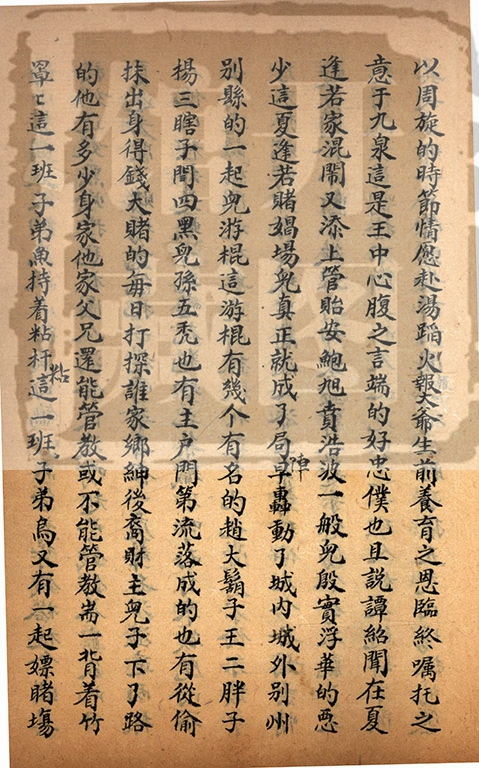 以周旋的時節情愿赴湯蹈火報大爺生前養育之恩臨終囑托之
意于九泉這是王中心腹之言端的好忠僕也且説譚紹聞在夏
逢若家混鬧又添上管貽安鮑旭賁浩波一般兒殷實浮華的惡
少這夏逢若賭娼塲兒真正就成了局陣早轟動了城内城外别州
别縣的一起兒游棍這游棍有幾个有名的趙大鬍子王二胖子
楊三瞎子閻四黑兒孫五秃也有主户門第流落成的也有從偷
抹出身得錢大賭的每日打探誰家鄉紳後裔財主兒子下了路
的他有多少身家他家父兄還能管教或不能管教耑一背着竹
罩〻這一班子弟魚持着粘杆粘這一班子弟鳥又有一起嫖賭塲